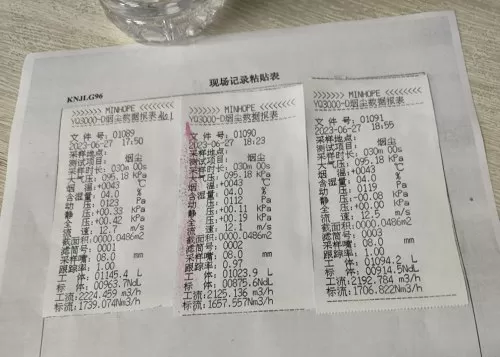 现场记录粘贴表
KNJLG96
>>>>>> MINHOPE <<<<<<<
YQ3000-D烟尘数据报表
文 件 号: 01089
2023-06-27 17:50
采样地点:
测试项目: 烟尘
采样时长: 030m 00s
大气压: 095.18 KPa
烟 温: +0043 ℃
含湿量: 04.0 %
动 压: 0123 Pa
静 压: +00.33 KPa
全 压: +00.42 KPa
流 速: 12.7 m/s
截面面积: 0000.0486m2
滤筒号: 0003
采样嘴: 08.0 mm
跟踪率: 1.00
工 体: 01145.4 L
标 体: 00963.7NdL
工流: 2224.459 m3/h
标流: 1739.074Nm3/h
>>>>>> MINHOPE <<<<<<<
YQ3000-D烟尘数据报表
文 件 号: 01090
2023-06-27 18:23
采样地点:
测试项目: 烟尘
采样时长: 030m 00s
大气压: 095.18 KPa
烟 温: +0043 ℃
含湿量: 04.0 %
动 压: 0112 Pa
静 压: +00.11 KPa
全 压: +00.19 KPa
流 速: 12.1 m/s
截面面积: 0000.0486m2
滤筒号: 0002
采样嘴: 08.0 mm
跟踪率: 0.97
工 体: 01023.9 L
标 体: 00875.6NdL
工流: 2125.136 m3/h
标流: 1657.557Nm3/h
>>>>>> MINHOPE <<<<<<<
YQ3000-D烟尘数据报表
文 件 号: 01091
2023-06-27 18:55
采样地点:
测试项目: 烟尘
采样时长: 030m 00s
大气压: 095.18 KPa
烟 温: +0043 ℃
含湿量: 04.0 %
动 压: 0119 Pa
静 压: -00.08 KPa
全 压: -00.00 KPa
流 速: 12.5 m/s
截面面积: 0000.0486m2
滤筒号: 0003
采样嘴: 08.0 mm
跟踪率: 1.00
工 体: 01094.2 L
标 体: 00914.5NdL
工流: 2192.784 m3/h
标流: 1706.822Nm3/h